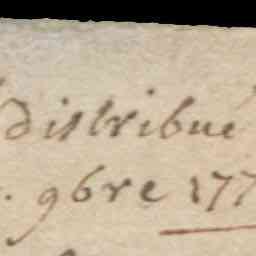 distribué
. 9bre 177